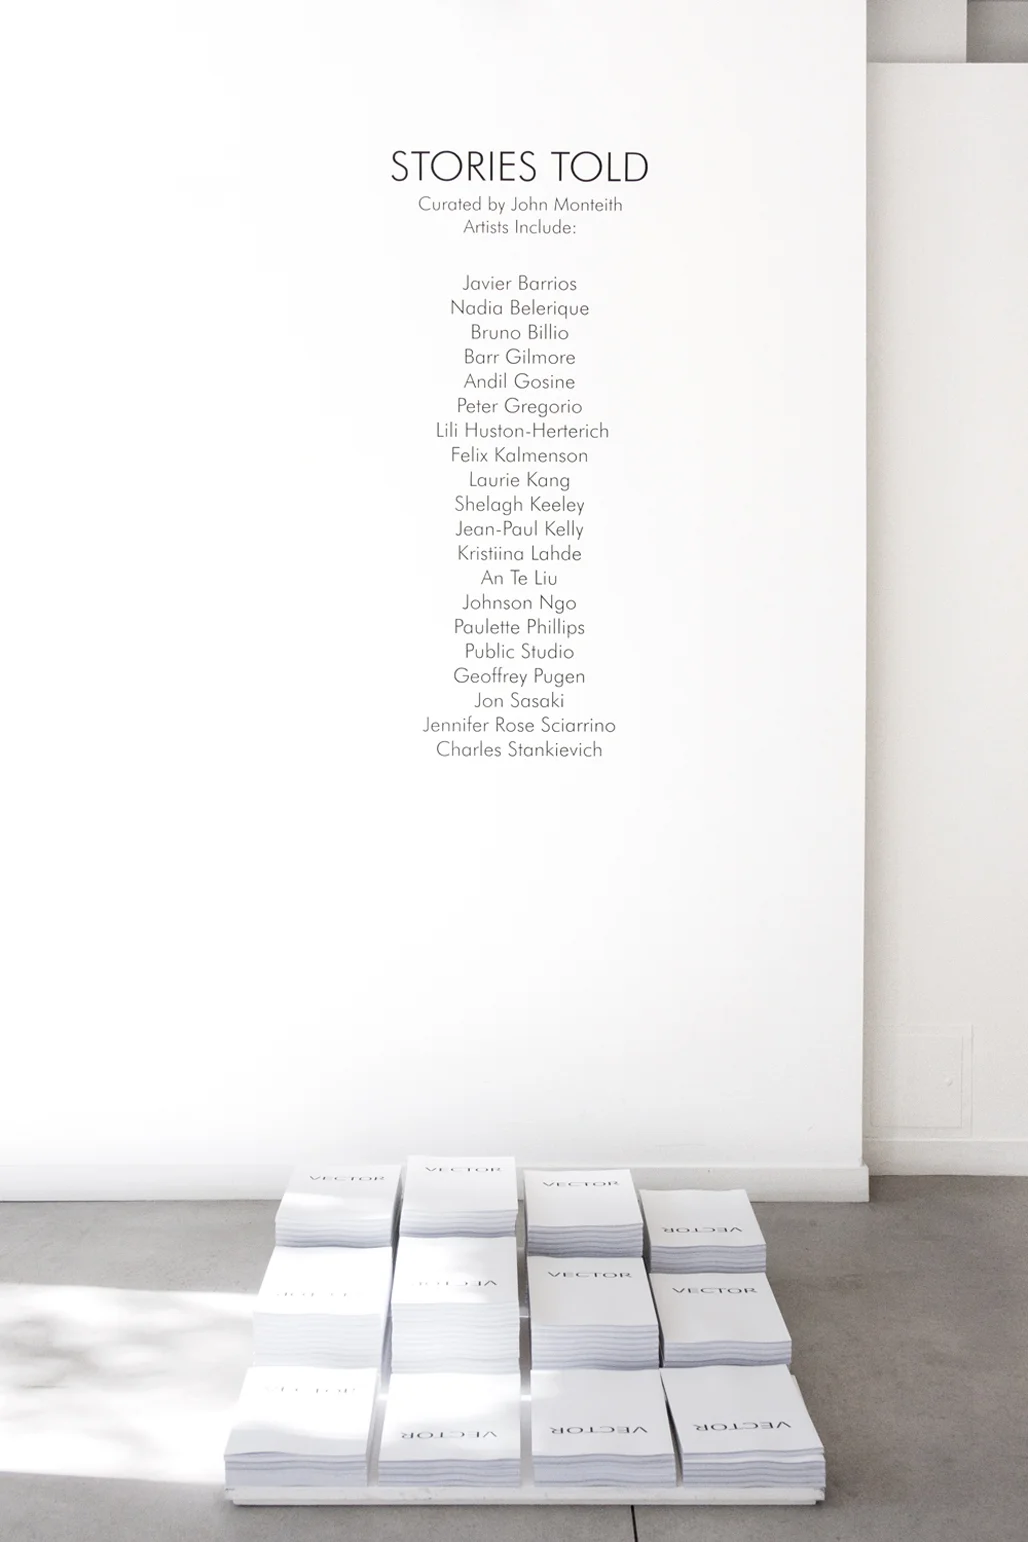 STORIES TOLD
Curated by John Monteith
Artists Include:
Javier Barrios
Nadia Belerique
Bruno Billio
Barr Gilmore
Andil Gosine
Peter Gregorio
Lili Huston-Herterich
Felix Kalmenson
Laurie Kang
Shelagh Keeley
Jean-Paul Kelly
Kristiina Lahde
An Te Liu
Johnson Ngo
Paulette Phillips
Public Studio
Geoffrey Pugen
Jon Sasaki
Jennifer Rose Sciarrino
Charles Stankievich
VECTOR
VECTOR
VECTOR
VECTOR
VECTOR
VECTOR
VECTOR
VECTOR
VECTOR